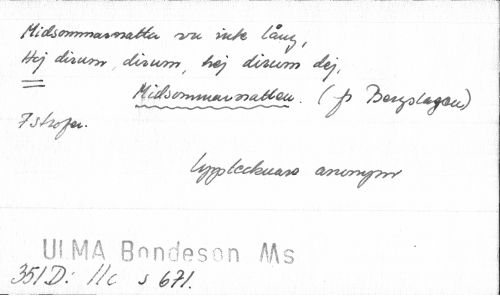 Midsommarnatten va inte lång,
Hej dirum, dirum, hej dirum dej,
Midsommarnatten. (fr Bergslagen)
7 strofer.
Upptecknare anonym
ULMA Bondeson Ms
351D: 11c s 671.